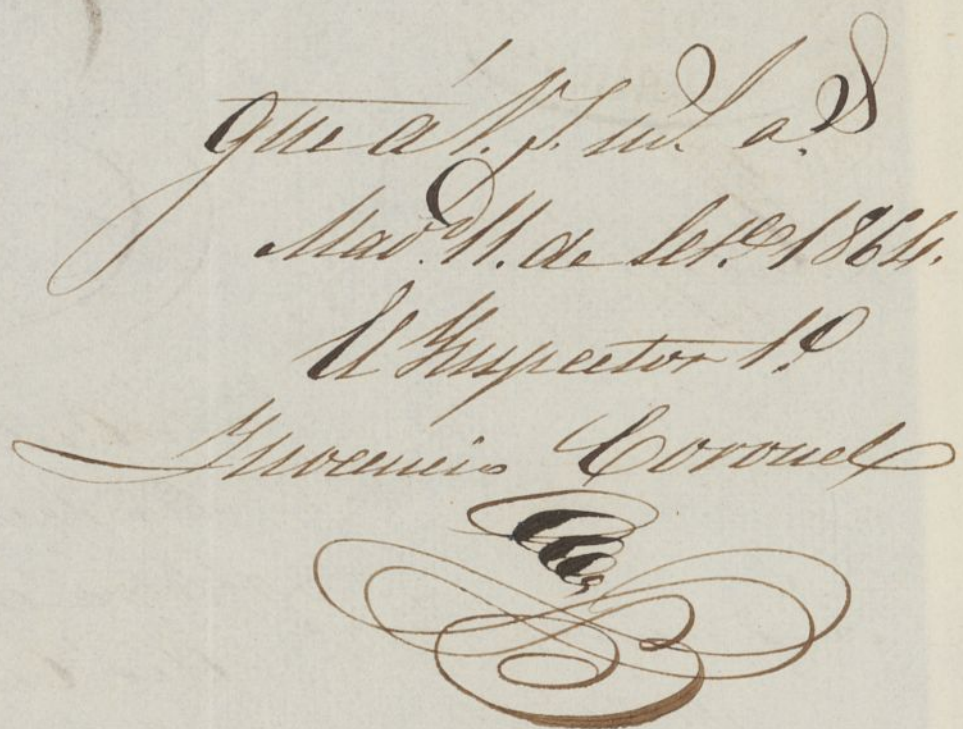 que á V. S. m.s a.s
Mad.d 11. de Set.e 1864.
El Inspector 1.o
Inocencio Coronel